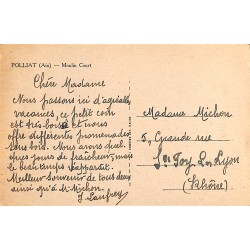 POLLIAT (Ain) — Moulin Court
Chère Madame
Nous passons ici d'agréables
vacances, ce petit coin
est très boisé et nous
offre différentes promenades
sous bois. Nous avons quel
ques jours de fraîcheur, mais
le beau temps réapparait.
Meilleur souvenir de tous deux
ainsi qu'à Mr Michon.
Madame Michon
5, Grande rue
Ste Foy Les Lyon
(Rhône)